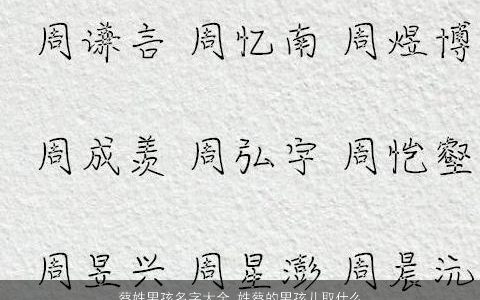 周谦言 周忆南 周煜博
周成羡 周弘字 周恺壑
周昱兴 周星澎 周晨沅
蔡姓男孩名字大全 姓蔡的男孩儿取什么